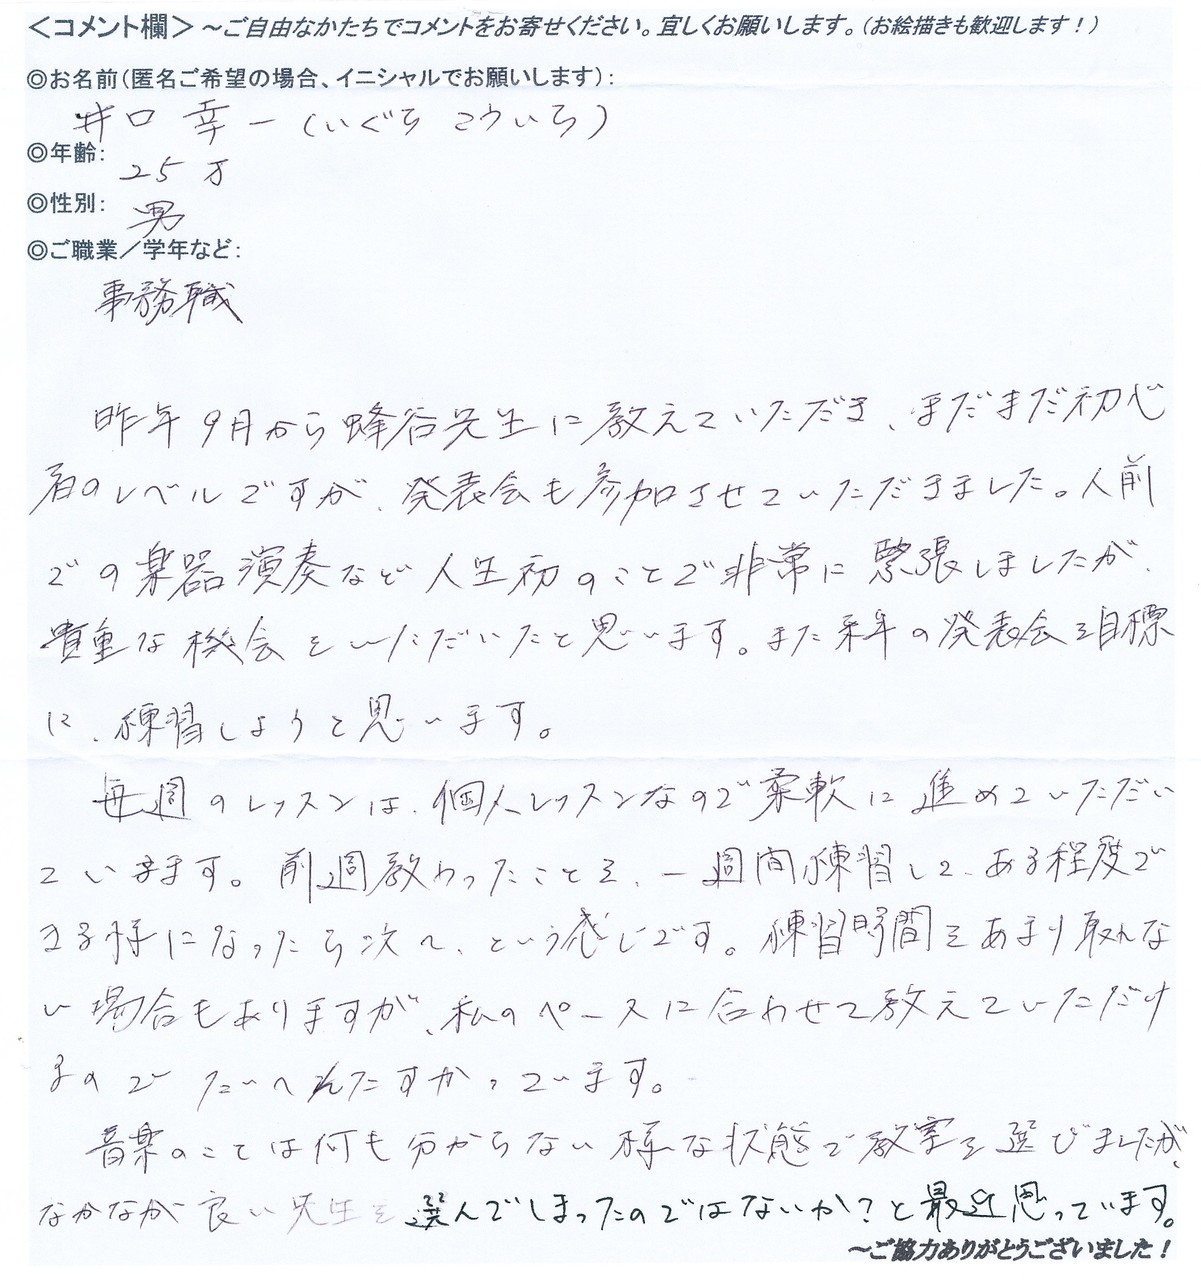 ＜コメント欄＞～ご自由なかたちでコメントをお寄せください。宜しくお願いします。(お絵描きも歓迎します！)
◎お名前(匿名ご希望の場合、イニシャルでお願いします):
井口 幸一(いぐち こういち)
◎年齢:
25才
◎性別:
男
◎ご職業／学年など:
事務職
昨年9月から蜂谷先生に教えていただき、まだまだ初心
者のレベルですが、発表会も参加させていただきました。人前
での楽器演奏など人生初のことで非常に緊張しましたが、
貴重な機会をいただいたと思います。また来年の発表会を目標
に、練習しようと思います。
毎週のレッスンは、個人レッスンなので柔軟に進めていただい
ています。前週教わったことを、一週間練習して、ある程度で
きる様になったら次へ、という感じです。練習時間をあまり取れな
い場合もありますが、私のペースに合わせて教えていただけ
るので たいへんたすかっています。
音楽のことは何も分からない様な状態で教室を選びましたが、
なかなか良い先生を選んでしまったのではないか？と最近思っています。
～ご協力ありがとうございました！